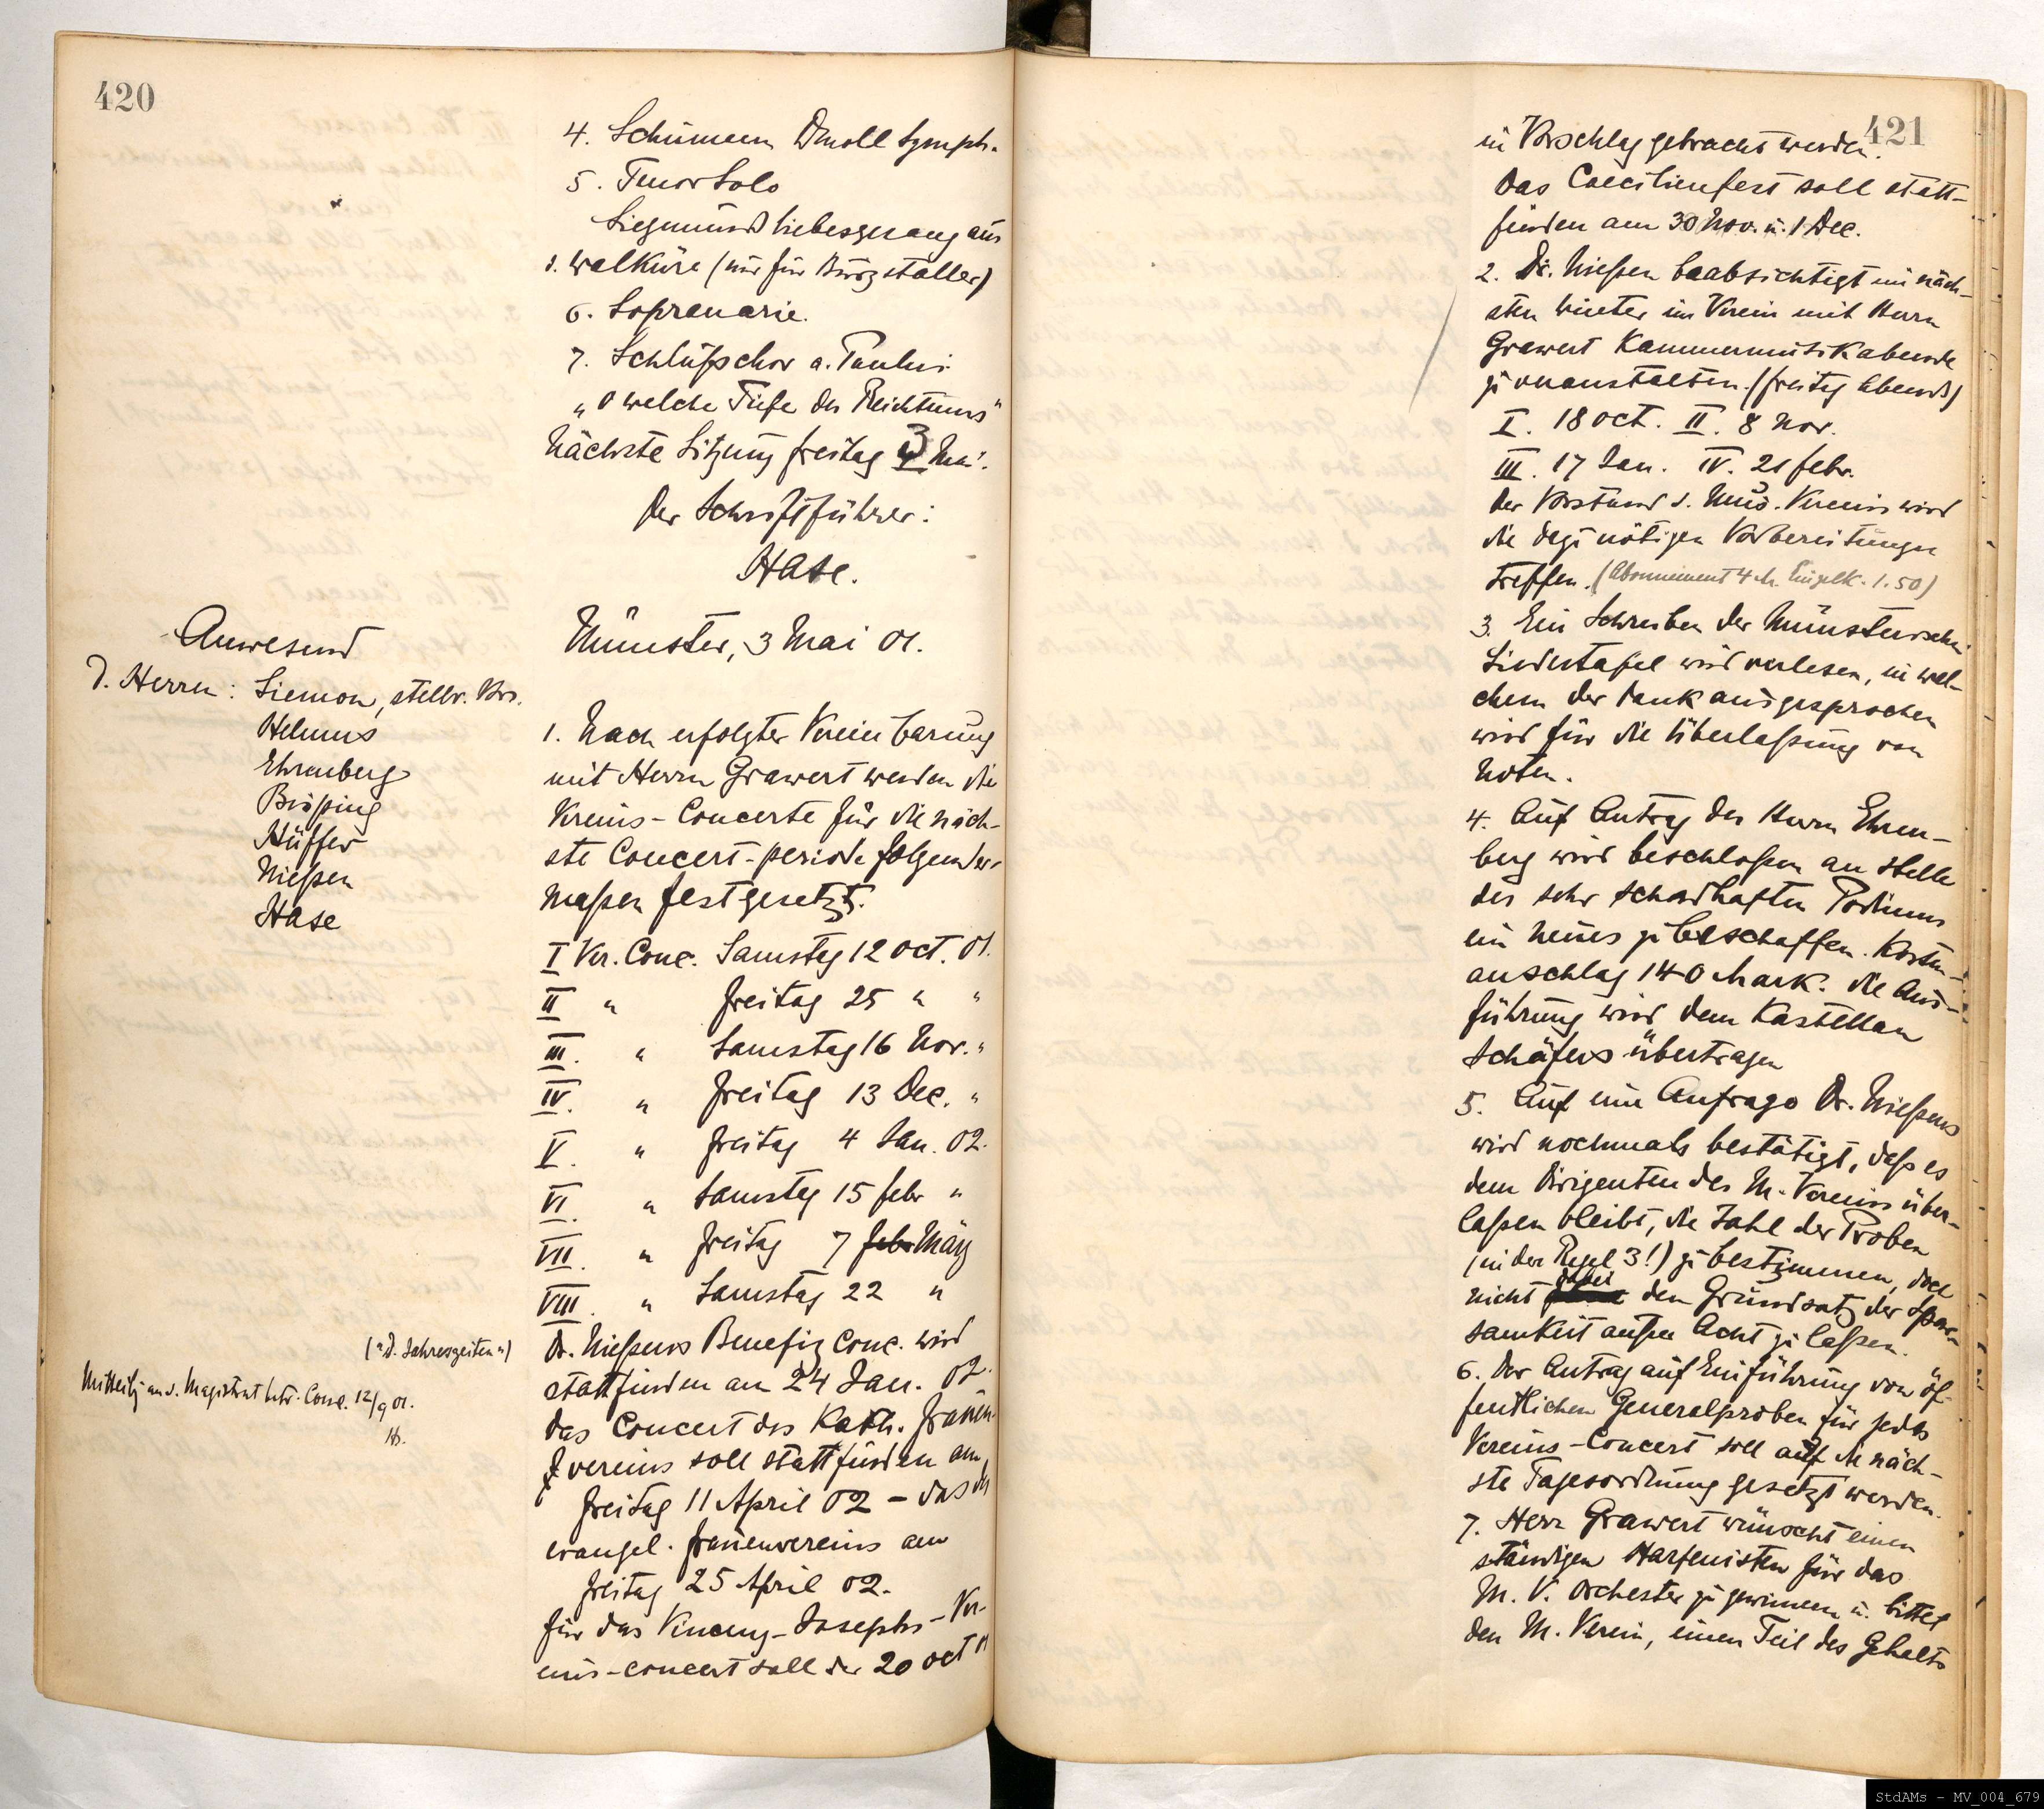 420
4. Schumann Dmoll Symph.
5. Tenor Solo
Siegmunds Liebesgesang aus
d. Walküre (nur für Burgstaller)
6. Sopranarie.
7. Schlußchor a. Paulus.
„O welche Tiefe des Reichtums"
Nächste Sitzung Freitag 3 Mai.
Der Schriftführer:
Hase.
Anwesend
d. Herren: Siemon, stellv. Vors.
Helmus
Ehrenberg
Bisping
Hüffer
Nießen
Hase
Münster, 3 Mai 01.
1. Nach erfolgter Vereinbarung
mit Herrn Grawert werden die
Vereins-Concerte für die näch-
ste Concert-periode folgender-
maßen festgesetzt.
I Ver. Conc. Samstag 12 Oct. 01.
II " Freitag 25 " "
III. " Samstag 16 Nov. "
IV. " Freitag 13 Dec. "
V. " Freitag 4 Jan. 02.
VI. " Samstag 15 Febr "
VII. " Freitag 7 Febr März
VIII. " Samstag 22 "
("d. Jahreszeiten")
Dr. Nießens Benefiz Conc. wird
stattfinden am 24 Jan. 02.
Mitteilg an d. Magistrat betr. Conc. 12/9 01.
Hs.
Das Concert des Kath. Frauen-
vereins soll stattfinden am
Freitag 11 April 02 – das des
evangel. Frauenvereins am
Freitag 25 April 02.
Für das Vincenz-Josephs-Ver-
eins-concert soll der 20 Oct
421
in Vorschlag gebracht werden.
Das Caecilienfest soll statt-
finden am 30 Nov. u. 1 Dec.
2. Dr. Nießen beabsichtigt im näch-
sten Winter im Verein mit Herrn
Grawert Kammermusikabende
zu veranstalten. (Freitag Abends)
I. 18 Oct. II. 8 Nov.
III. 17 Jan. IV. 21 Febr.
Der Vorstand d. Mus. Vereins wird
die dazu nötigen Vorbereitungen
treffen. (Abonnement 4 M. Einzelk. 1.50)
3. Ein Schreiben der Münsterschen
Liedertafel wird verlesen, in wel-
chem der Dank ausgesprochen
wird für die Überlaßung von
Noten.
4. Auf Antrag des Herrn Ehren-
berg wird beschloßen an Stelle
des sehr schadhaften Podiums
ein neues zu beschaffen. Kosten-
anschlag 140 Mark. Die Aus-
führung wird dem Kastellan
Schäfers übertragen
5. Auf eine Anfrage Dr. Nießens
wird nochmals bestätigt, daß es
dem Dirigenten des M. Vereins über-
laßen bleibt, die Zahl der Proben
(in der Regel 3!) zu bestimmen, doch
nicht dabei den Grundsatz der Spar-
samkeit außer Acht zu laßen.
6. Der Antrag auf Einführung von öf-
fentlichen Generalproben für jedes
Vereins-Concert soll auf die näch-
ste Tagesordnung gesetzt werden.
7. Herr Grawert wünscht einen
ständigen Harfenisten für das
M. V. Orchester zu gewinnen u. bittet
den M. Verein, einen Teil des Gehalts
StdAMs - MV_004_679